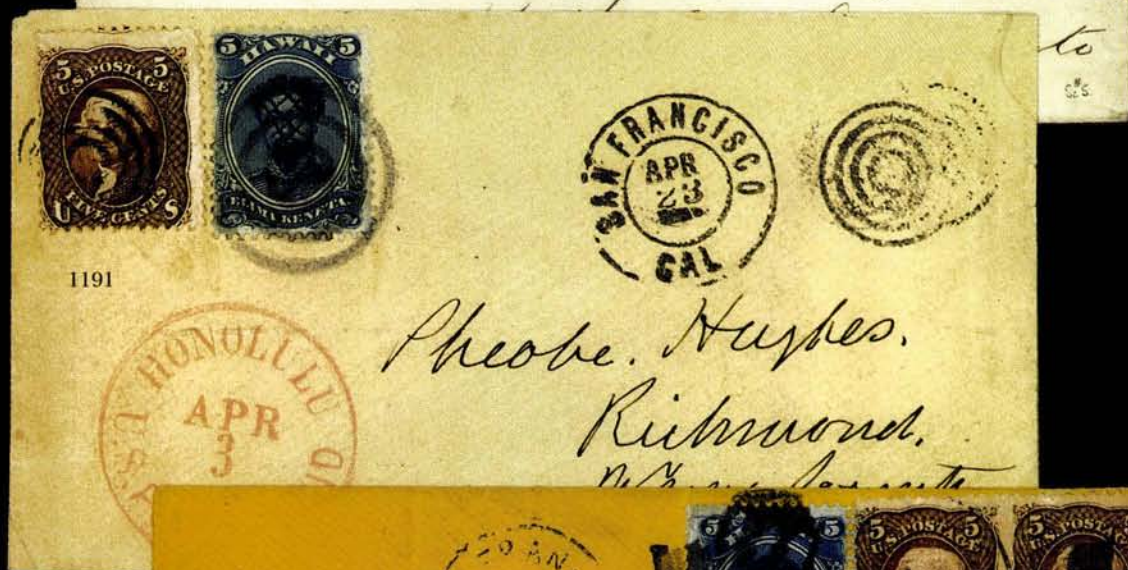 to
5 U.S. POSTAGE 5
FIVE CENTS
U S
5 HAWAII 5
ELIMA KENETA
SAN FRANCISCO
APR
23
CAL
1191
HONOLULU
U.S.
APR
3
Pheobe. Hughes.
Richmond.
SAN
5 5
5 U.S. POSTAGE 5
5 U.S. POSTAGE 5